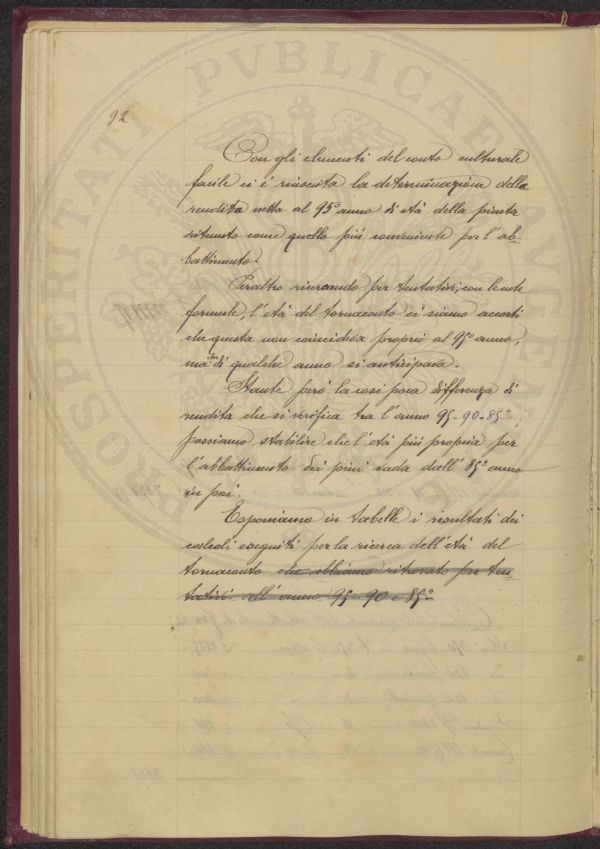 92
Con gli elementi del conto culturale
facile ci è riuscita la determinazione della
rendita netta al 95° anno di età della pineta
ritenuto come quello più conveniente per l'ab-
battimento.
Peraltro ricercando per tentativi, con le note
formule, l'età del tornaconto ci siamo accorti
che questa non coincideva proprio al 95° anno,
ma che di qualche anno si anticipava.
Stante però la così poca differenza di
rendita che si verifica tra l'anno 95-90-85°
possiamo stabilire che l'età più propria per
l'abbattimento dei pini vada dall'85° anno
in poi.
Esponiamo in tabelle i risultati dei
calcoli eseguiti per la ricerca dell'età del
tornaconto che abbiamo ritrovato per ten-
tativi all'anno 95-90-85°
PROSPERITATI PVBLICAE AVGENDAE